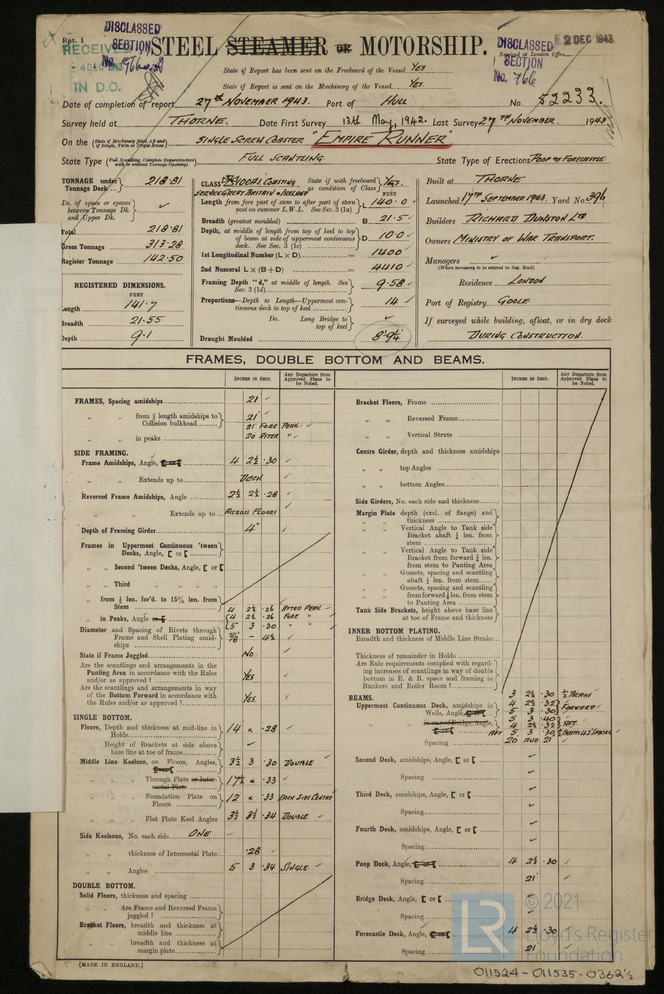 Rpt. 1
DISCLASSED
SECTION
No. 766
RECEIVED
IN D.O.
STEEL STEAMER OR MOTORSHIP.
DISCLASSED
SECTION
No. 766
2 DEC 1943
Received at London Office
State if Report has been sent on the Freeboard of the Vessel Yes
State if Report is sent on the Machinery of the Vessel Yes
Date of completion of report 27th November 1943. Port of Hull No. 52233.
Survey held at Thorne. Date First Survey 13th May, 1942. Last Survey 27th November. 1943
On the (State if Machinery fitted Aft and if Single, Twin or Triple Screw) Single Screw Coaster "Empire Runner"
State Type (Full Scantling, Complete Superstructure with or without Tonnage Openings) Full Scantling State Type of Erections Poop & Forecastle
TONNAGE under Tonnage Deck 218.81
Do. of space or spaces between Tonnage Dk. and Upper Dk. ✓
Total 218.81
Gross Tonnage 313.28
Register Tonnage 142.50
REGISTERED DIMENSIONS.
FEET
Length 141.7
Breadth 21.55
Depth 9.1
CLASS 100A1 Coasting Service Great Britain & Ireland State if with freeboard as condition of Class Yes.
FEET
Length from fore part of stem to after part of stern post on summer L.W.L. See Sec. 3 (1a) L 140.0
Breadth (greatest moulded) B 21.5
Depth, at middle of length from top of keel to top of beam at side of uppermost continuous deck. See Sec. 3 (1c) D 10.0
1st Longitudinal Number (L × D) 1400
2nd Numeral L × (B + D) 4410
Framing Depth "d," at middle of length. See Sec. 3 (1d) 9.58
Proportions—Depth to Length—Uppermost continuous deck to top of keel 14
Do. Long Bridge to top of keel ✓
Draught Moulded 8' 9¼"
Built at Thorne
Launched 17th September 1943 Yard No. 396
Builders Richard Dunston Ltd
Owners Ministry of War Transport.
Managers ✓
(Where necessary to be entered in Reg. Book)
Residence London
Port of Registry Goole
If surveyed while building, afloat, or in dry dock
During Construction.
FRAMES, DOUBLE BOTTOM AND BEAMS.
INCHES IN SHIP. Any Departure from Approved Plans to be Noted.
FRAMES, Spacing amidships 21 ✓
" " from ⅗ length amidships to Collision bulkhead 21 ✓
" " in peaks 21 Fore Peak. 20 After "
SIDE FRAMING.
Frame Amidships, Angle, 4 2½ .30 ✓
" " Extends up to Deck ✓
Reversed Frame Amidships, Angle 2½ 2½ .28 ✓
" " Extends up to Across Floors ✓
Depth of Framing Girder 4"
Frames in Uppermost Continuous 'tween Decks, Angle, [ or [
" " Second 'tween Decks, Angle, [ or [
" " Third " " "
" " from ⅕ len. for'd. to 15% len. from Stem
" " in Peaks, Angle 4 2½ .26 After Peak ✓
4 2½ .26 Fore " ✓
5 3 .30 " "
Diameter and Spacing of Rivets through Frame and Shell Plating amidships 5/8 – 4½ ✓
State if Frame Joggled No
Are the scantlings and arrangements in the Panting Area in accordance with the Rules and/or as approved? Yes
Are the scantlings and arrangements in way of the Bottom Forward in accordance with the Rules and/or as approved? Yes
SINGLE BOTTOM.
Floors, Depth and thickness at mid-line in Holds 14 × .28
" Height of Brackets at side above base line at toe of frame ✓
Middle Line Keelson, on Floors, Angles, 3½ 3 .30 Double ✓
" " Through Plate or Intercostal Plate 17½ × .33 ✓
" " Foundation Plate on Floors 12 × .33 Each Side Centre
" " Flat Plate Keel Angles 3½ 3½ .34 Double ✓
Side Keelsons, No. each side One
" " thickness of Intercostal Plate .28 ✓
" " Angles 5 3 .34 Single ✓
DOUBLE BOTTOM.
Solid Floors, thickness and spacing
" " Are Frame and Reversed Frame joggled?
Bracket Floors, breadth and thickness at middle line
" " breadth and thickness at margin plate
INCHES IN SHIP. Any Departure from Approved Plans to be Noted.
Bracket Floors, Frame
" " Reversed Frame
" " Vertical Struts
Centre Girder, depth and thickness amidships
" " top Angles
" " bottom Angles
Side Girders, No. each side and thickness
Margin Plate depth (excl. of flange) and thickness
" " Vertical Angle to Tank side Bracket abaft ¼ len. from stem
" " Vertical Angle to Tank side Bracket from forward ¼ len. from stem to Panting Area
" " Gussets, spacing and scantling abaft ¼ len. from stem
" " Gussets, spacing and scantling from forward ¼ len. from stem to Panting Area
Tank Side Brackets, height above base line at toe of Frame and thickness
INNER BOTTOM PLATING.
Breadth and thickness of Middle Line Strake
Thickness of remainder in Holds
Are Rule requirements complied with regarding increases of scantlings in way of double bottom in E. & B. space and framing in Bunkers and Boiler Room?
BEAMS.
Uppermost Continuous Deck, amidships in Wells, Angle, 3 2½ .30 ½ Beams
4 2½ .32 Forward ✓
5 3 .30
5 3 .40
4 2½ .32 Aft.
Aft 5 3 .30
Spacing 20 and 21 ✓
Second Deck, amidships, Angle, [ or [ ✓
Spacing ✓
Third Deck, amidships, Angle, [ or [ ✓
Spacing ✓
Fourth Deck, amidships, Angle, [ or [ ✓
Spacing ✓
Poop Deck, Angle, 4 2½ .30 ✓
Spacing 21 ✓
Bridge Deck, Angle, [ or [ ✓
Spacing ✓
Forecastle Deck, Angle, 4 2½ .30 ✓
Spacing 21 ✓
(MADE IN ENGLAND.)
LR
© 2021
Lloyd's Register
Foundation
011524-011535-0362½